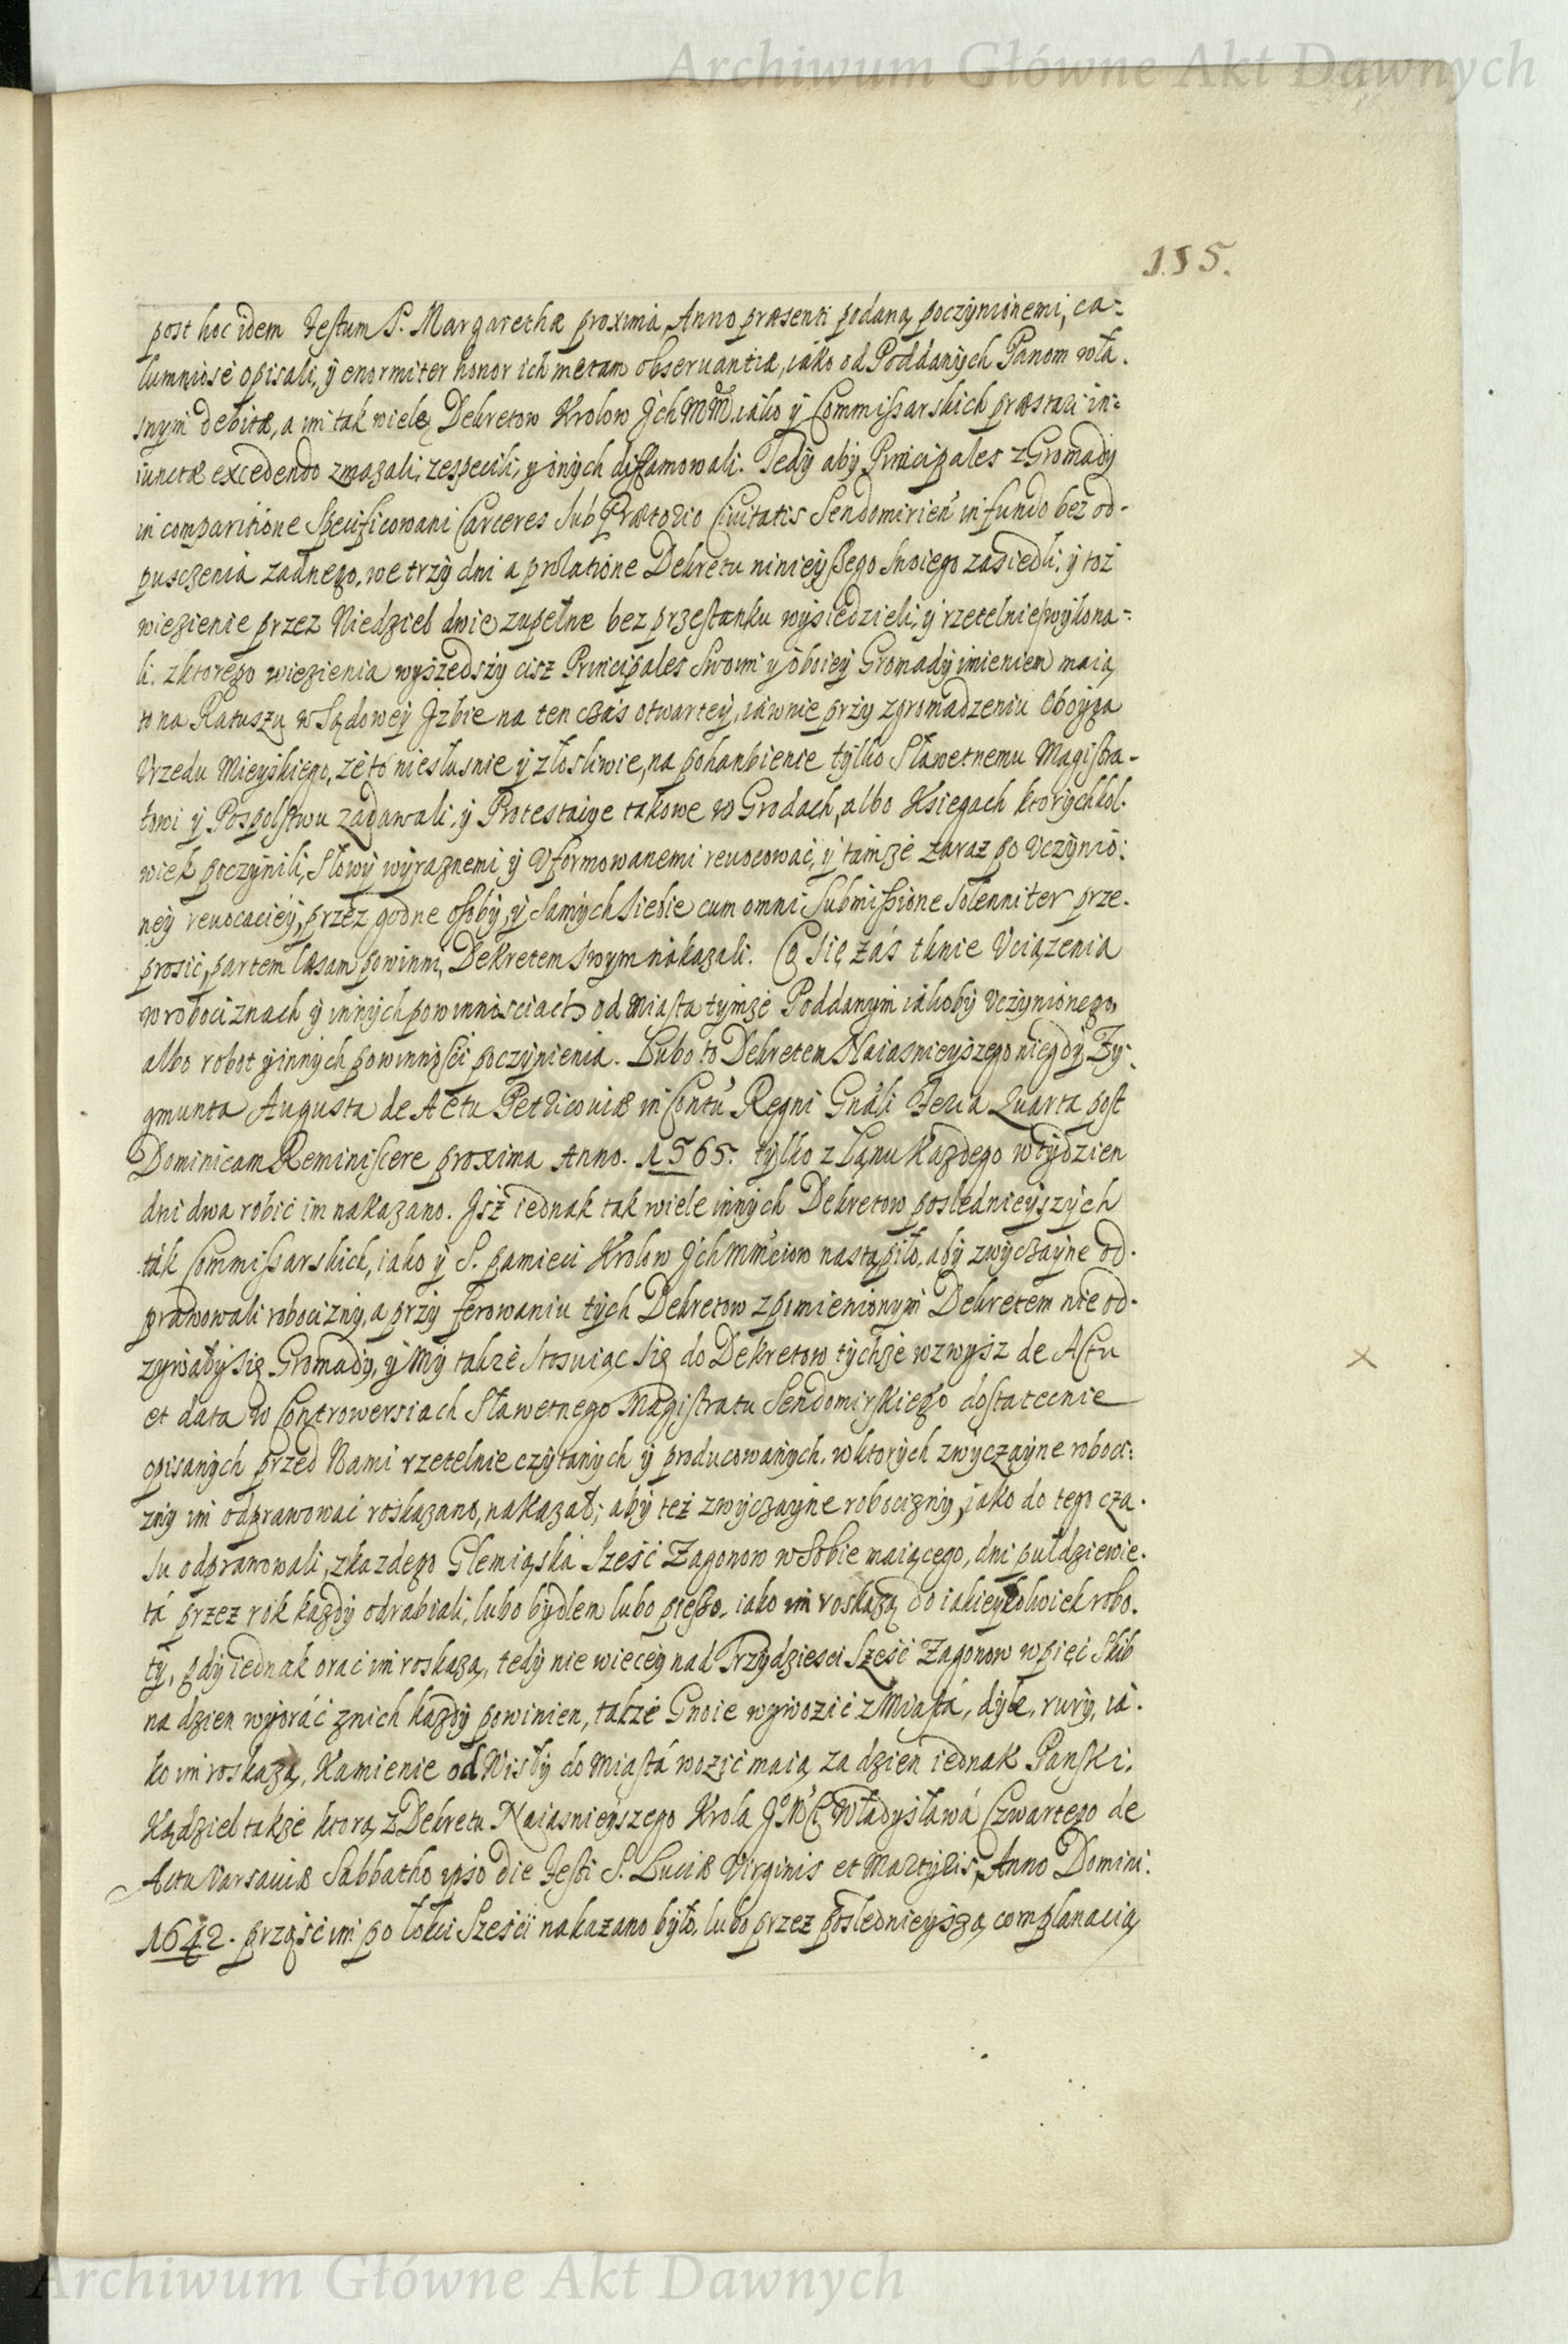 Archiwum Główne Akt Dawnych
155.
post hoc idem Festum S. Margarethæ proxima, Anno præsenti podaną poczynionemi, ca=
lumniose opisali, ÿ enormiter honor ich metam obseruantiæ, iáko od Poddanÿch Panom wła-
snym debitæ, a im tak wielą Dekretow Krolow Jch MM. iako ÿ Commissarskich præstari in=
iunctæ excedendo zmazali, zespecili, ÿ onÿch diffamowali. Tedÿ abÿ Principales z Gromadÿ
in comparitione Specificowani Carceres Sub Prætorio Ciuitatis Sendomirien̄ in fundo bez od-
pusczenia żadnego, we trzÿ dni a prolatione Dekretu ninieÿszego Swoiego zasiedli; ÿ toż
wiezienie przez Niedziel dwie zupełne bez przestanku wÿsiedzieli, ÿ rzetelnie wÿkona=
li. z ktorego wiezienia wyszedszÿ cisz Principales Swoim ÿ oboieÿ Gromadÿ imieniem maią
to na Ratuszu w Sądoweÿ Jzbie na ten czas otwarteÿ, iawnie przÿ zgromadzeniu Oboÿga
Vrzedu Mieÿskiego, że to niesłusnie ÿ złosliwie, na pohanbienie tÿlko Sławetnemu Magistra-
towi ÿ Pospolstwu zadawali, ÿ Protestaiye takowe w Grodach, albo Ksiegach ktorÿchkol-
wiek poczÿnili, Słowÿ wÿraznemi ÿ Vformowanemi reuocować, ÿ tamże zaraz po Vczÿnio:
neÿ reuocacieÿ, przez godne osobÿ, ÿ Samÿch Siebie cum omni Submissione Solenniter prze-
prosić, partem læsam powinni, Dekretem Swym nakazali. Co Się zás tknie Vciązenia
w robociznach ÿ innÿch powinnosciach od Miasta tÿmże Poddanÿm iákobÿ Vczÿnionego,
albo robot ÿ innÿch powinnosci poczÿnienia. Lubo to Dekretem Naiasnieÿszego niegdÿ Zÿ-
gmunta Augusta de Actu Petricouiæ in Contu̅ Regni Gnāli Feria Quarta post
Dominicam Reminiscere proxima Anno. 1565. tÿlko z Łanu Kazdego w tÿdzien
dni dwa robić im nakazano. Jsż iednak tak wiele innÿch Dekretow poslednieÿszÿch
ták Commissarskich, iako ÿ S. pamieci Krolow Jch Mm̄ciow nastąpiło, abÿ zwÿczaÿne od-
prawowali robociznÿ, a przÿ ferowaniu tÿch Dekretow z pomienionÿm Dekretem nie od-
zÿwałÿ Się Gromadÿ, ÿ Mÿ także Stosuiąc Się do Dekretow tÿchże wzwÿsz de Actu
et data w Controwersiach Sławetnego Magistratu Sendomirskiego dostatecnie
opisanÿch przed Nami rzetelnie czÿtanÿch ÿ producowanÿch. w ktorÿch zwÿczaÿne roboci:
znÿ im odprawować roskazano, nakazał; abÿ też zwÿczaÿne robociznÿ, jako do tego cza-
Su odprawowali, z kazdego Glemiąska Sześć Zagonow w Sobie maiącego, dni pułdziewie-
tá przez rok kazdÿ odrabiali, lubo bÿdlem lubo pieszo, iako im roskazą do iakieÿkolwiek robo-
tÿ, gdÿ iednak orać im roskazą, tedÿ nie wieceÿ nad Trzÿdziesci Sześć Zagonow w pięć Skib
na dzien wÿoráć z nich kazdÿ powinien, także Gnoie wÿwozić z Miástá, dÿle, rurÿ, iá-
ko im roskazą, Kamienie od Wisłÿ do Miastá wozić maią za dzien iednak Panski.
Kądziel także ktorą z Dekretu Naiasnieÿszego Krola Jo M̄ci Władÿsławá Czwartego de
Actu Varsauiæ Sabbatho ipso die Festi S. Luciæ Virginis et Martÿris, Anno Domini.
1642. prząść im po łokci Sześci nakazano bÿło, lubo przez poslednieÿszą complanacią
Archiwum Główne Akt Dawnych